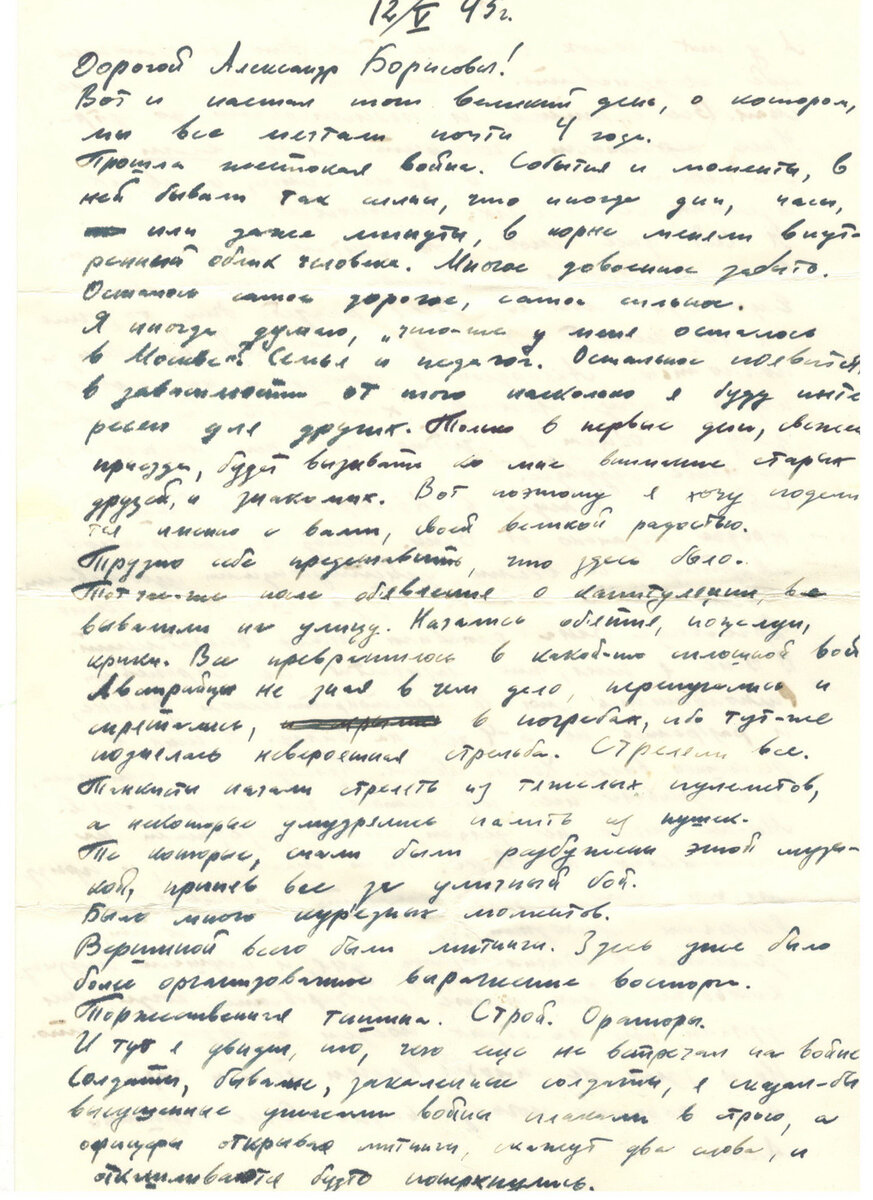 12/V 45г.
Дорогой Александр Борисович!
Вот и настал тот великий день, о котором,
мы все мечтали почти 4 года.
Прошла жестокая война. События и моменты, в
ней бывали так сильны, что иногда дни, часы,
или даже минуты, в корне меняли внут-
ренный облик человека. Многое довоенное забыто.
Осталось самое дорогое, самое сильное.
Я иногда думаю, „что-же у меня осталось
в Москве? Семья и педагог. Остальное появится,
в зависимости от того насколько я буду инте
ресен для других. Только в первые дни, свежего
приезда, будет вызывать ко мне внимание старых
друзей, и знакомых. Вот поэтому я хочу подели
тся именно с вами, своей великой радостью.
Трудно себе представить, что здесь было.
Тотчас-же после объявления о капитуляции, все
вывалили на улицу. Начались обятия, поцелуи,
крики. Все превратилось в какой-то сплошной вой
Австрийцы не зная в чем дело, перепугались и
спрятались, в погребах, ибо тут-же
поднелась невероятная стрельба. Стреляли все.
Танкисты начали стрелять из тяжелых пулеметов,
а некоторые умудрялись палить из пушек.
Те которые, спали были разбужены этой музы-
кой, приняв все за уличный бой.
Было много курьезных моментов.
Вершиной всего были митинги. Здесь уже было
более организованное выражение восторга.
Торжественная тишина. Строй. Ораторы.
И тут я увидел, то, чего еще не встречал на войне
Солдаты, бывалые, закаленные солдаты, я сказал-бы
высушенные ужасами войны плакали в строю, а
офицеры открывая митинги, скажут два слова, и
откашливаются будто поперхнулись.